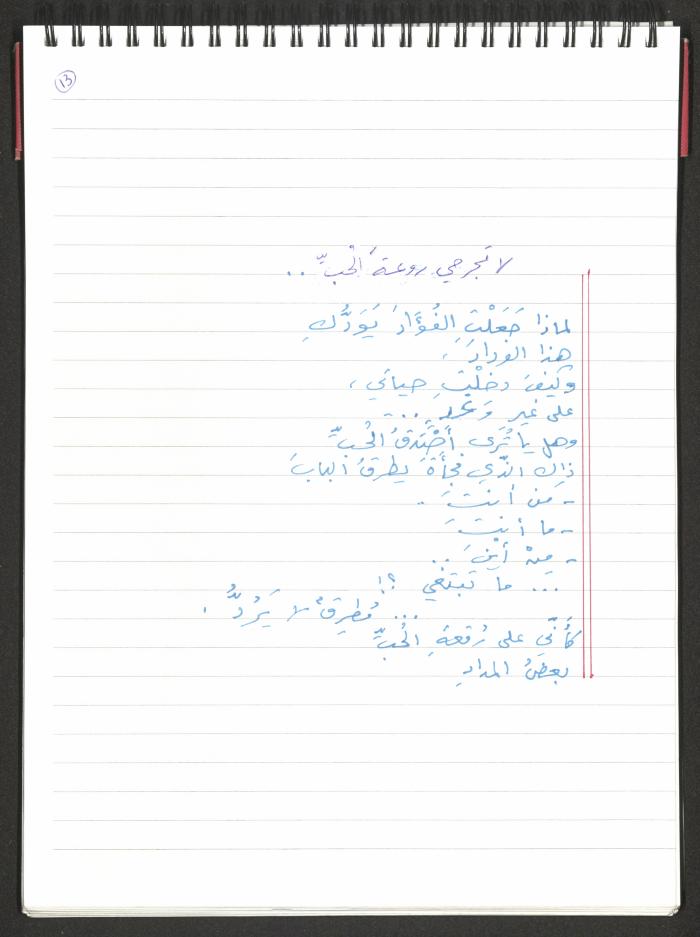 13
لا تجرحي روعةَ الْحبِّ ..
لماذا جَعَلْتِ الفُؤَادَ يَوَدُّكِ
هذا الودادَ ،
وكيفَ دخلْتِ حياتي ،
على غيرِ وَعْدٍ ...
وهل يا تُرَى أُصَدِّقُ الْحُبِّ
ذاك الذّي فجأَةً يطرقُ البابَ
- مَن أنتَ ..
- ما أنتَ
- مِنْ أَيْنَ ..
... ما تَبتَغي ؟!
... مُطرِقٌ لا يَرُدُّ .
كأَنّي على رُقعةِ الْحُبِّ
بعضُ المدادِ